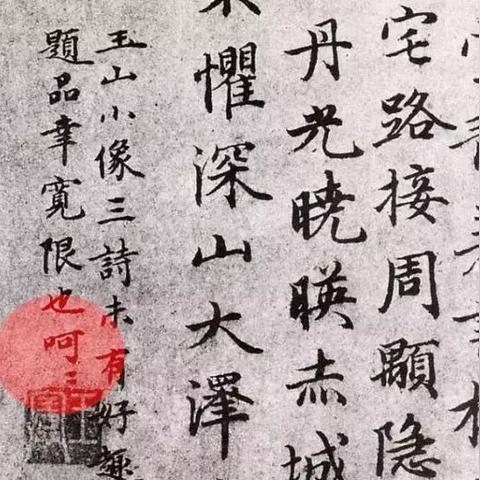 宅路接周顒隐
丹光曉暎赤城
懼深山大澤
玉山小像三詩未有好趣
題品幸寬限也呵〻